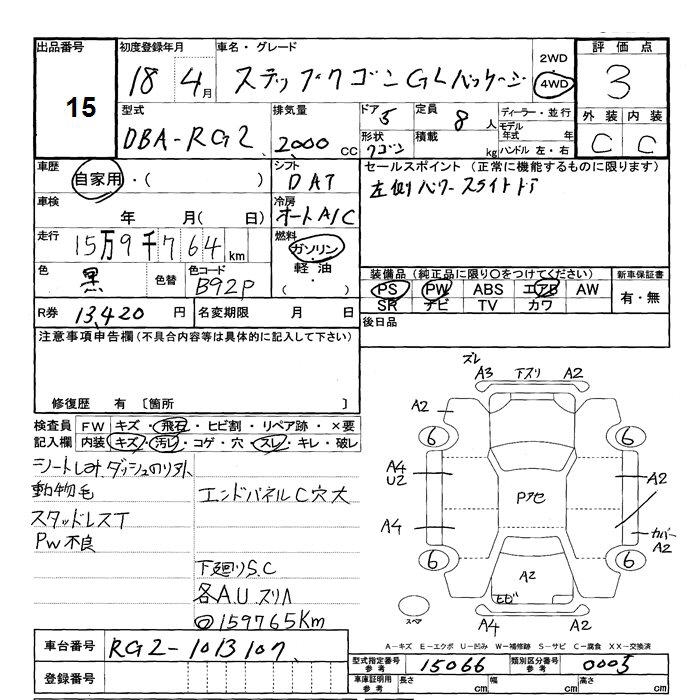 出品番号 初度登録年月 車名・グレード 2WD 評価点
15 18 4月 ステップワゴン GLパッケージ 4WD 3
型式 排気量 ドア 5 定員 8人 ディーラー・並行 外装 内装
DBA-RG2 2,000 CC 形状 ワゴン 積載 kg モデル年式 年 C C
ハンドル 左・右
車歴 シフト セールスポイント (正常に機能するものに限ります)
自家用・( ) DAT 左側パワースライドドア
車検 冷房
年 月( 日) オートA/C
走行 15万9千764km 燃料 ガソリン・軽油
色 黒 色替 色コード B92P 装備品(純正品に限り○をつけてください) 新車保証書
PS PW ABS エアB AW 有・無
SR ナビ TV カワ
R券 13,420円 名変期限 月 日 後日品
注意事項申告欄(不具合内容等は具体的に記入して下さい)
修復歴 有 〔箇所 〕
検査員 FW キズ・飛石・ヒビ割・リペア跡・×要
記入欄 内装 キズ・汚レ・コゲ・穴・スレ・キレ・破レ
シートしみ、ダッシュのり外
動物毛
エンドパネルC穴大
スタッドレスT
PW不良
下廻りS.C
各A.U スリハ
◎159765Km
ズレ
A3 下スリ A2
A2
6 6
A4
U2
A2
Pアセ
A4
カバー
A2
6 6
A2
ヒビ
スペア
A4 A2
A-キズ E-エクボ U-凹み W-補修跡 S-サビ C-腐食 XX-交換済
車台番号 RG2-1013107
型式指定番号 参考 15066 類別区分番号 参考 0005
登録番号 車庫証明用 参考 長さ cm 幅 cm 高さ cm